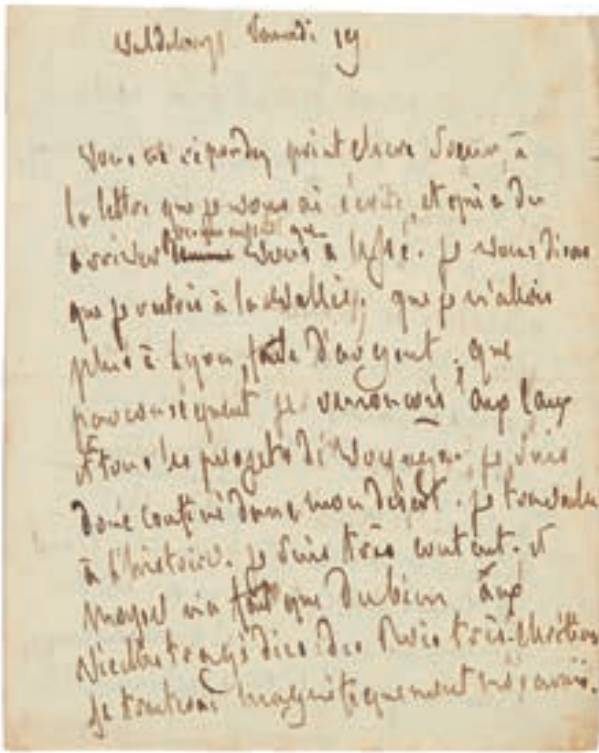 Samedi 19
Vous ne répondez point chère Soeur, à
la lettre que je vous ai écrite, et qui a du
arriver presque aussitôt que vous à Ussé. je vous disois
que je restois à la Vallée, que je n'allois
plus à Lyon, faute d'argent, que
par conséquent je renonçois aux
et tous les projets de Voyage. je suis
donc confiné dans mon désert. je travaille
à l'histoire. je suis très content. et
n'a fait que du bien aux
des Rois très-chrétiens
je magnifiquement